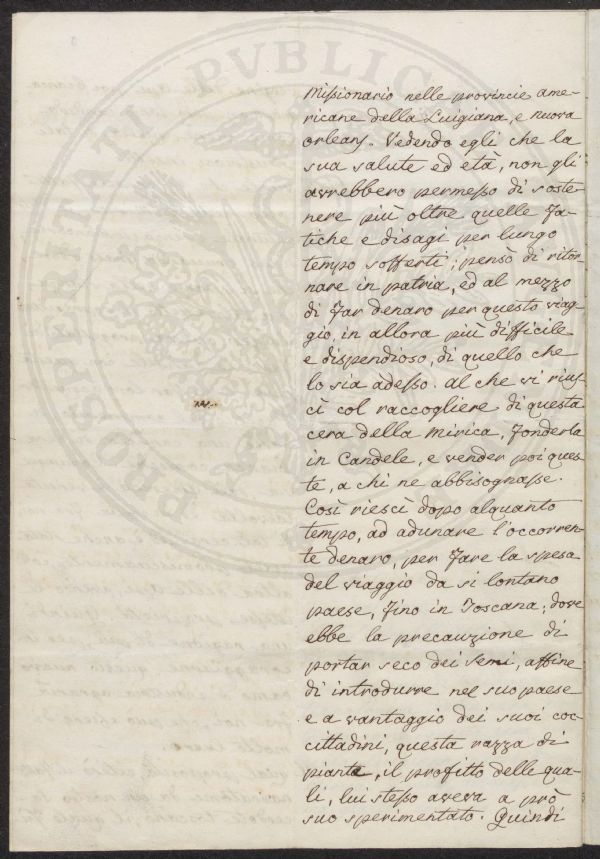 Missionario nelle provincie ame-
ricane della Luigiana, e nuova
orleans. Vedendo egli che la
sua salute ed età, non gli
avrebbero permesso di soste-
nere più oltre quelle fa-
tiche e disagi per lungo
tempo sofferti; pensò di ritor-
nare in patria, ed al mezzo
di far denaro per questo viag-
gio, in allora più difficile
e dispendioso, di quello che
lo sia adesso. al che si rius-
cì col raccogliere di questa
cera della mirica, fonderla
in Candele, e vender poi ques-
te, a chi ne abbisognasse.
Così riescì dopo alquanto
tempo, ad adunare l'occorren-
te denaro, per fare la spesa
del viaggio da si lontano
paese, fino in Toscana; dove
ebbe la precauzione di
portar seco dei semi, affine
di introdurre nel suo paese
e a vantaggio dei suoi coc-
cittadini, questa razza di
piante, il profitto delle qua-
li, lui stesso aveva a prò
suo sperimentato. Quindi
PROSPERITATI PVBLICAE